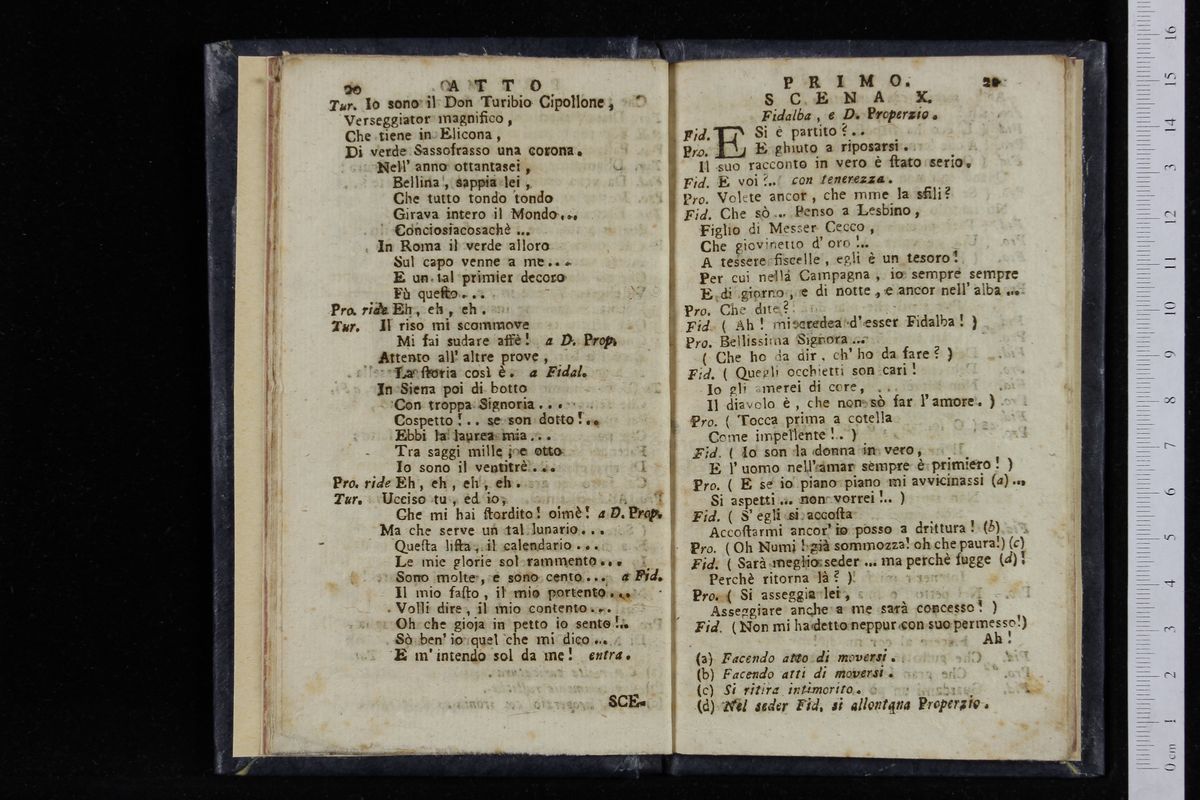 20 ATTO
Tur. Io sono il Don Turibio Cipollone,
Verseggiator magnifico,
Che tiene in Elicona,
Di verde Sassofrasso una corona.
Nell' anno ottantasei,
Bellina, sappia lei,
Che tutto tondo tondo
Girava intero il Mondo...
Conciosiacosachè ...
In Roma il verde alloro
Sul capo venne a me...
E un tal primier decoro
Fù questo...
Pro. ride Eh, eh, eh.
Tur. Il riso mi scommove
Mi fai sudare affè! a D. Prop.
Attento all' altre prove,
La storia così è. a Fidal.
In Siena poi di botto
Con troppa Signoria...
Cospetto!.. se son dotto!..
Ebbi la laurea mia...
Tra saggi mille, e otto
Io sono il ventitrè...
Pro. ride Eh, eh, eh, eh.
Tur. Ucciso tu, ed io,
Che mi hai stordito! oimè! a D. Prop.
Ma che serve un tal lunario...
Questa lista, il calendario...
Le mie glorie sol rammento...
Sono molte, e sono cento... a Fid.
Il mio fasto, il mio portento...
Volli dire, il mio contento...
Oh che gioja in petto io sento!..
Sò ben' io quel che mi dico...
E m' intendo sol da me! entra.
SCE-
PRIMO. 21
SCENA X.
Fidalba, e D. Properzio.
Fid. E Si è partito?..
Pro. E ghiuto a riposarsi.
Il suo racconto in vero è stato serio.
Fid. E voi?.. con tenerezza.
Pro. Volete ancor, che mme la sfili?
Fid. Che sò ... Penso a Lesbino,
Figlio di Messer Cecco,
Che giovinetto d' oro!..
A tessere fiscelle, egli è un tesoro!
Per cui nella Campagna, io sempre sempre
E di giorno, e di notte, e ancor nell' alba ...
Pro. Che dite?
Fid ( Ah! mi scredea d'esser Fidalba! )
Pro. Bellissima Signora ...
( Che ho da dir, ch' ho da fare? )
Fid. ( Quegli occhietti son cari!
Io gli amerei di core,
Il diavolo è, che non sò far l'amore. )
Pro. ( Tocca prima a cotella
Come impellente!.. )
Fid. ( Io son la donna in vero,
E l' uomo nell'amar sempre è primiero! )
Pro. ( E se io piano piano mi avvicinassi (a)...
Si aspetti ... non vorrei!.. )
Fid. ( S' egli si accosta
Accostarmi ancor' io posso a drittura! (b)
Pro. (Oh Numi! già sommozza! oh che paura!) (c)
Fid. ( Sarà meglio seder ... ma perchè fugge (d)!
Perchè ritorna là? )
Pro. ( Si asseggia lei,
Asseggiare anche a me sarà concesso! )
Fid. (Non mi ha detto neppur con suo permesso!)
Ah!
(a) Facendo atto di moversi.
(b) Facendo atti di moversi.
(c) Si ritira intimorito.
(d) Nel seder Fid. si allontana Properzio.